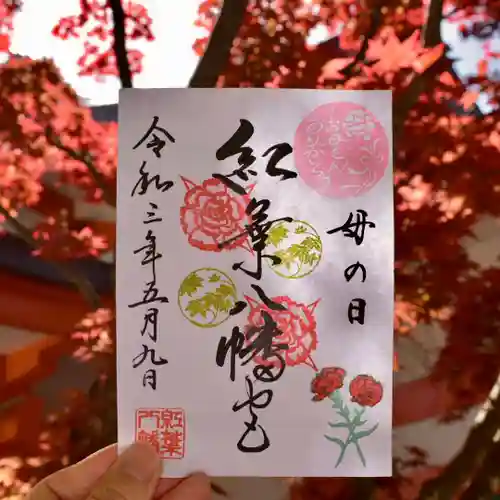 母の日
紅葉八幡宮
令和三年五月九日
紅葉
八幡